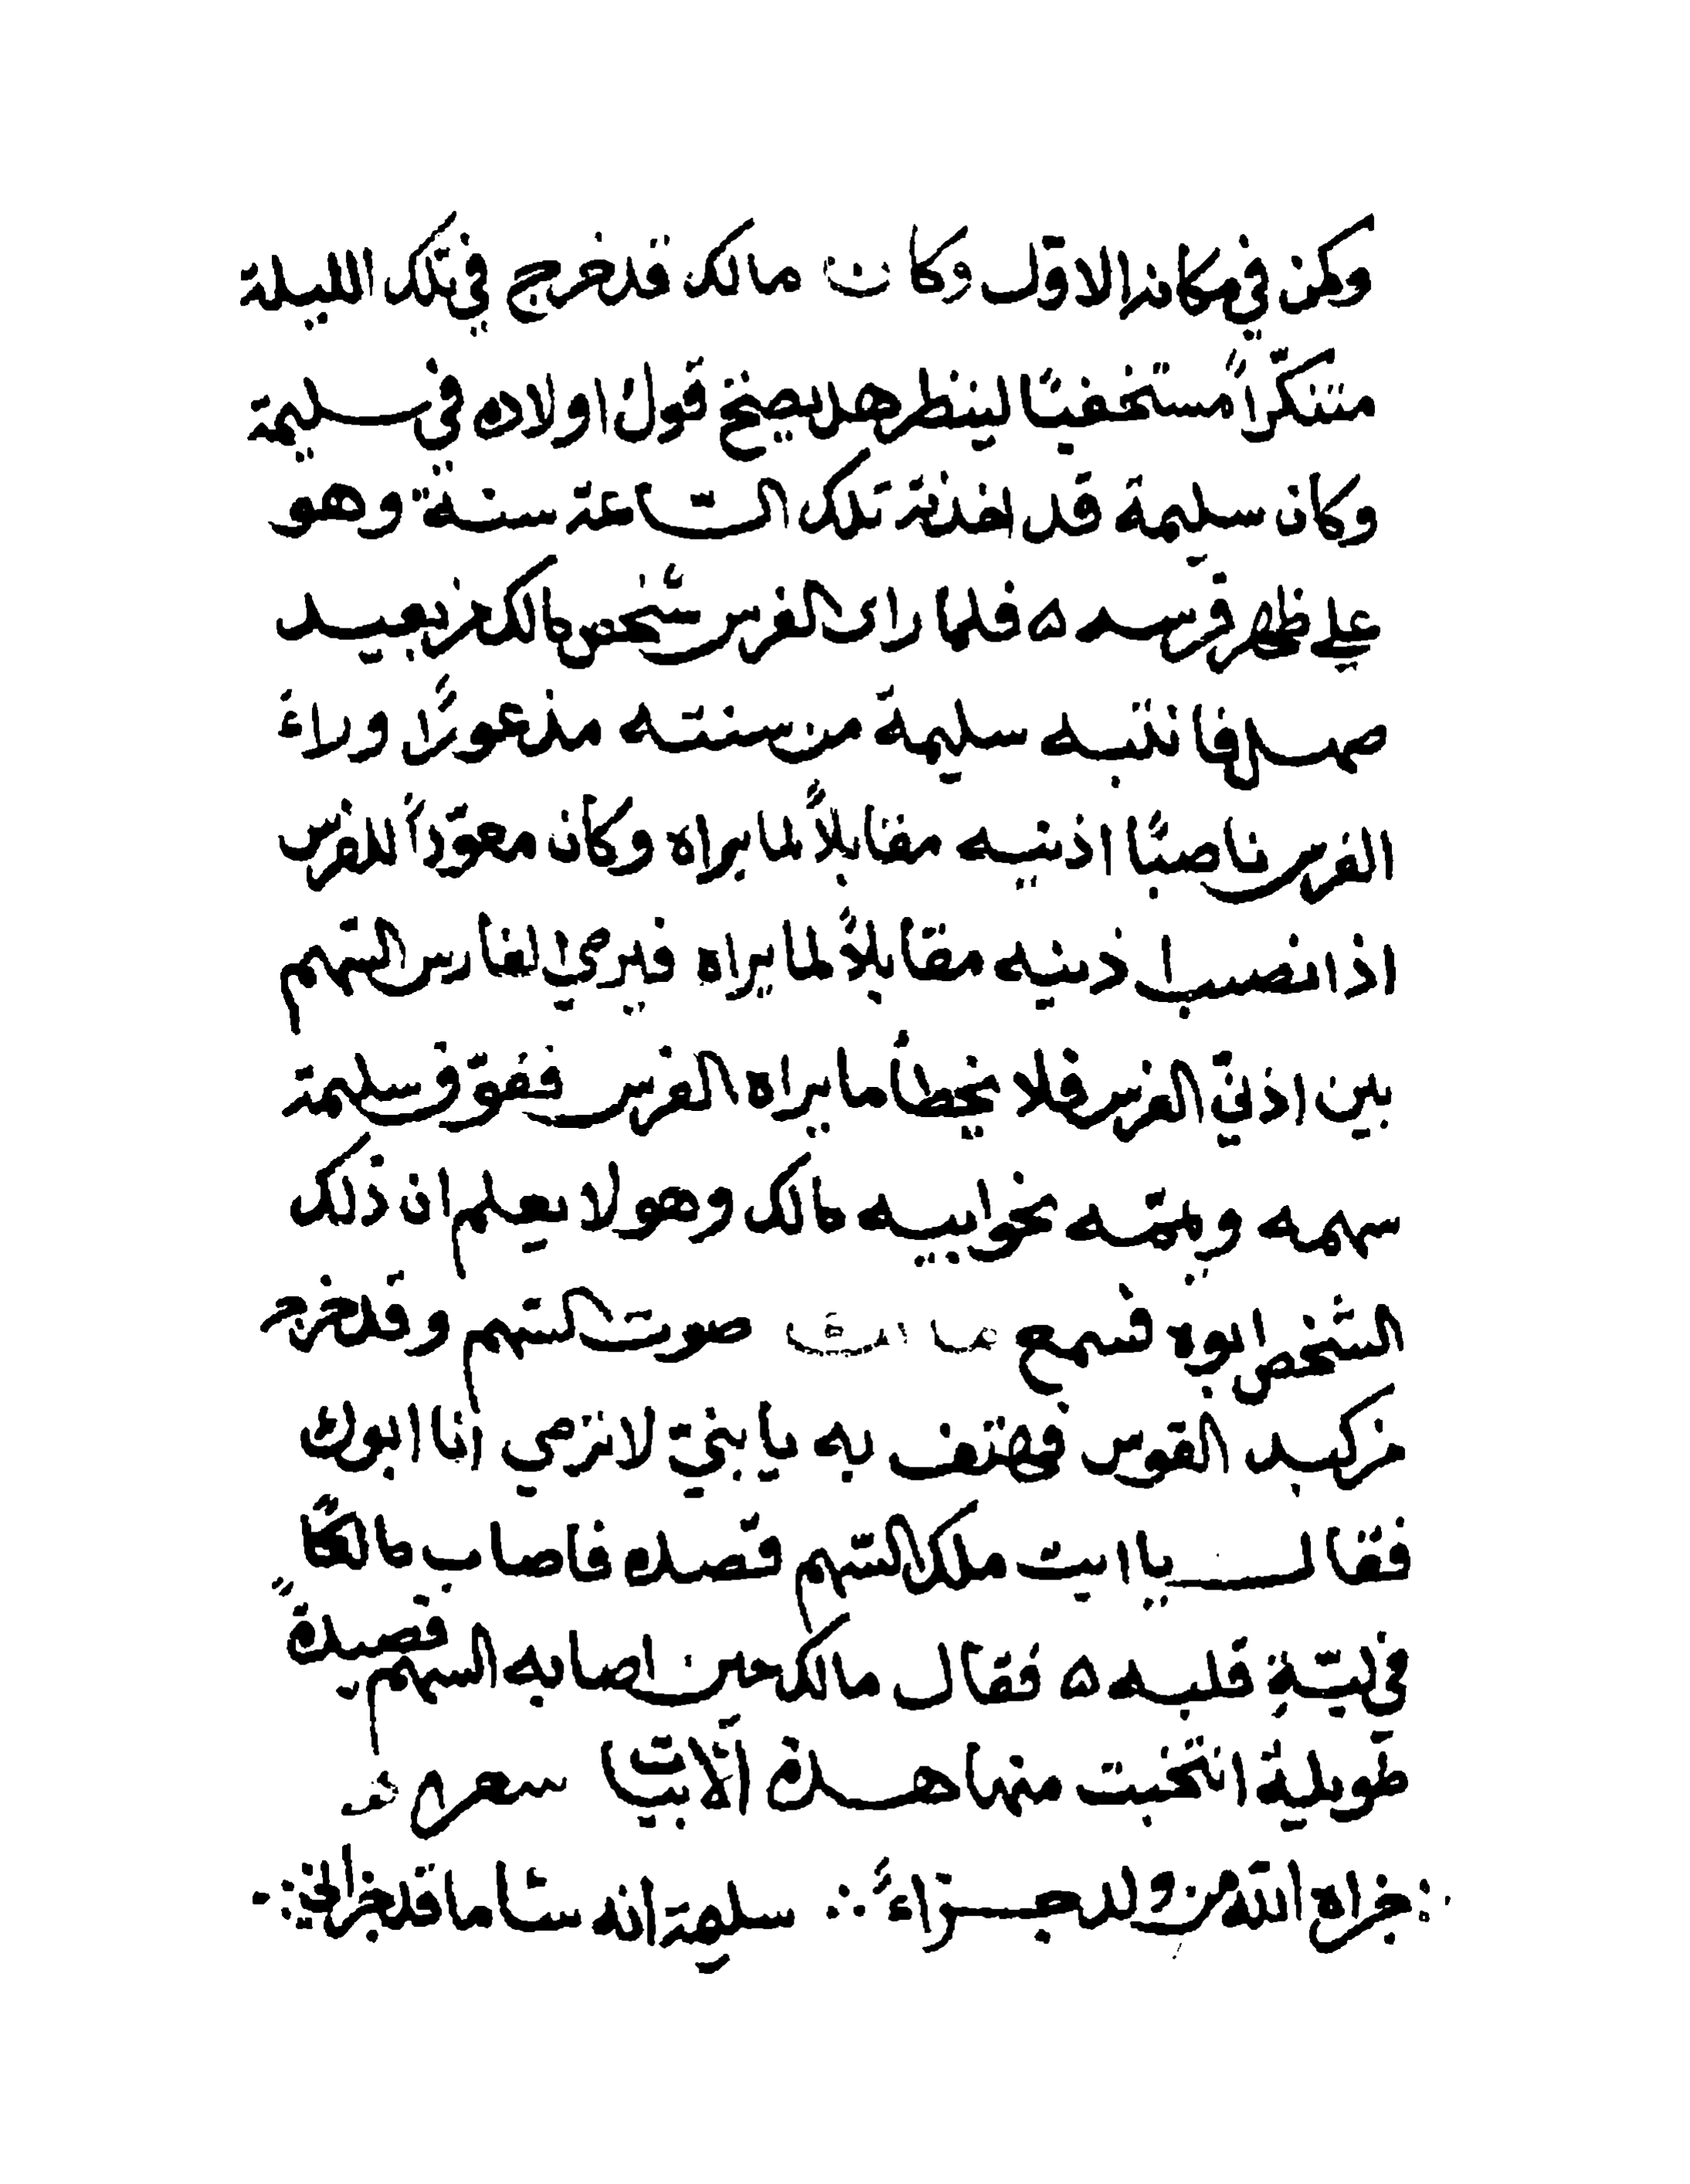 وكمن في مكانه الاول وكان مالك قد خرج في تلك الليلة
متنكرًا مستخفيًا لينظر هل يصح قول اولاده في سليمة
وكان سليمة قد اخذته تلك السّاعة سنة وهو
على ظهر فرسه ه فلما راى الفرس شخص مالك من بعيد
صهل فانتبه سليمة من سنته مذعورًا وراءَ
الفرس ناصبًا اذنيه مقابلاً لما يراه وكان معوّداً للفرس
اذا نصب اذنيه مقابلاً لما يراه فيرمي الفارس السّهم
بين اذنيّ الفرس فلا يخطأ ما يراه الفرس ففوّق سليمة
سهمه ويمّمه نحو ابيه مالك وهو لا يعلم ان ذلك
الشخص ابوه فسمع صوت السّهم وقد خرج
من كبد القوس فهتف به يا بنيّ لا ترمي انا ابوك
فقال يا ابت ملك السّهم قصده فاصاب مالكًا
في لبّة قلبه ه فقال مالك حين اصابه السهم قصيدةً
طويلة انتخبت منها هذه الأبيات شعر
جزاه الله من ولد جزاءً ∴ سليمة انه شاما قد جزاني